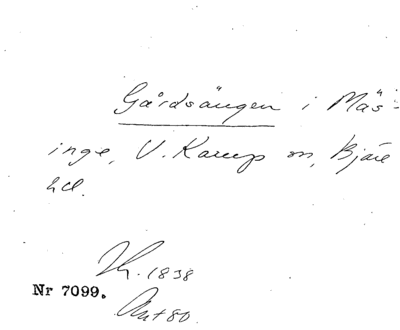 Gårdsängen i Mäs-
inge, V. Karup sn, Bjäre
hd.
1838
Nr 7099.
Akt 80.